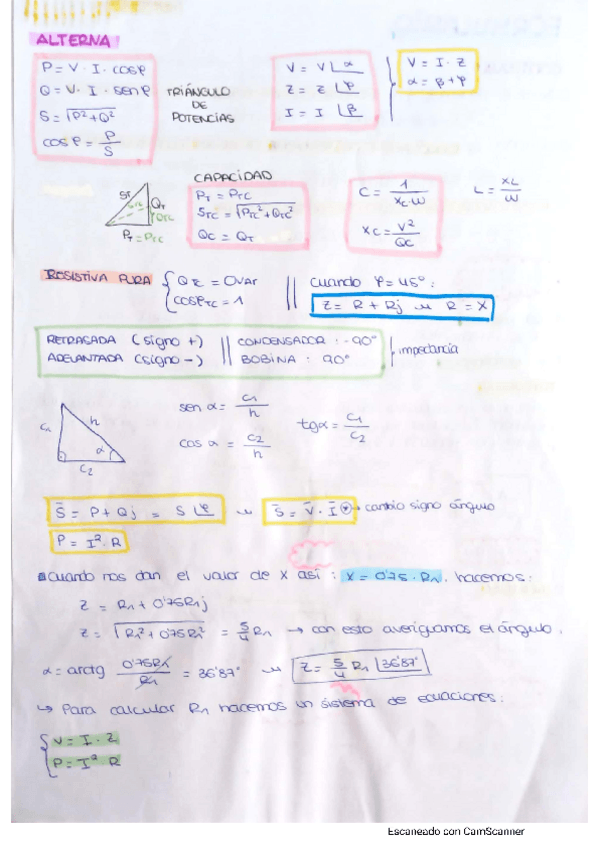 ALTERNA
P = V · I · cosφ
Q = V · I · senφ
S = √P²+Q²
cosφ = P/S
TRIÁNGULO
DE
POTENCIAS
V = V∟α
Z = Z∟φ
I = I∟β
V = I · Z
α = β + φ
CAPACIDAD
PT = PTC
STC = √PTC² + QTC²
QC = QT
ST
QT
QTC
PT = PTC
C = 1/XC·W
XC = V²/QC
L = XL/W
RESISTIVA PURA
QTC = 0 VAr
cosφTC = 1
cuando φ = 45° :
Z = R + Rj R = X
RETRASADA (signo +) || CONDENSADOR : -90°
ADELANTADA (signo -) || BOBINA : 90°
impedancia
C1
h
α
C2
sen α = C1/h
cos α = C2/h
tgα = C1/C2
S̄ = P + Qj = S∟φ
S̄ = V̄ · Ī * → cambio signo ángulo
P = I² · R
Cuando nos dan el valor de X así : X = 0'75 · R1. hacemos:
Z = R1 + 0'75R1j
Z = √R1² + 0'75R1² = 5/4 R1 → con esto averiguamos el ángulo.
α = arctg 0'75R1/R1 = 36'87° Z = 5/4 R1 ∟36'87°
↳ Para calcular R1 hacemos un sistema de ecuaciones:
V = I · Z
P = I² · R
Escaneado con CamScanner